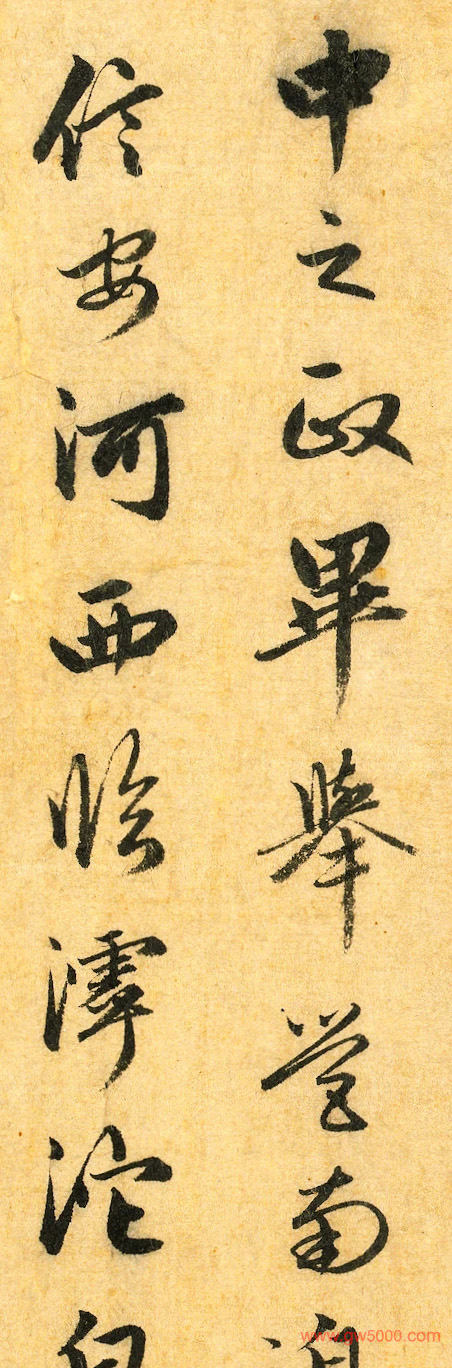 中之政畢舉嘗南
信安河西臨滹沱
www.gw5000.com